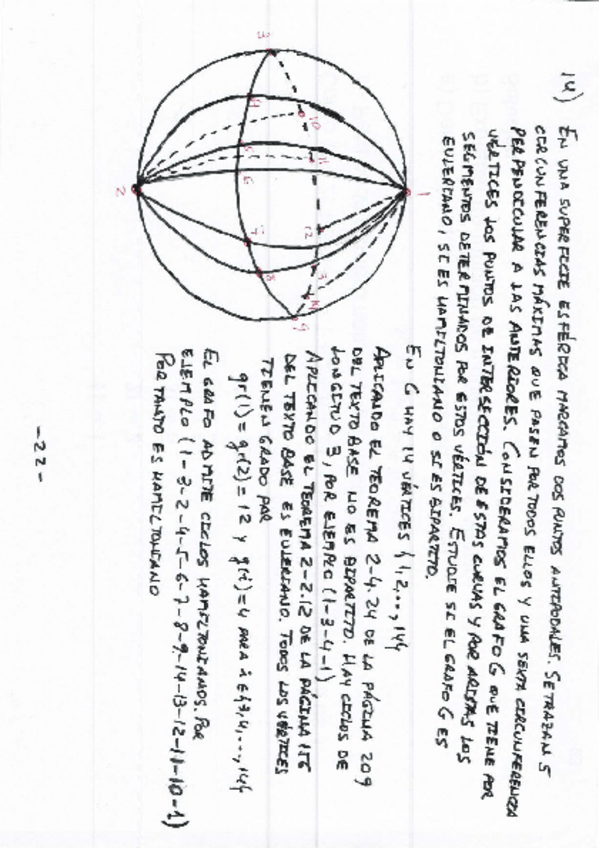 14) EN UNA SUPERFICIE ESFÉRICA MARCAMOS DOS PUNTOS ANTIPODALES. SE TRAZAN 5
CIRCUNFERENCIAS MÁXIMAS QUE PASEN POR TODOS ELLOS Y UNA SEXTA CIRCUNFERENCIA
PERPENDICULAR A LAS ANTERIORES. CONSIDERAMOS EL GRAFO G QUE TIENE POR
VÉRTICES LOS PUNTOS DE INTERSECCIÓN DE ESTAS CURVAS Y POR ARISTAS LOS
SEGMENTOS DETERMINADOS POR ESTOS VÉRTICES. ESTUDIE SI EL GRAFO G ES
EULERIANO, SI ES HAMILTONIANO O SI ES BIPARTITO.
1
2
3
4
5
6
7
8
9
10
11
12
13
14
EN G HAY 14 VÉRTICES {1,2,...,14}
APLICANDO EL TEOREMA 2-4.24 DE LA PÁGINA 209
DEL TEXTO BASE NO ES BIPARTITO. HAY CICLOS DE
LONGITUD 3, POR EJEMPLO (1-3-4-1)
APLICANDO EL TEOREMA 2-2.12 DE LA PÁGINA 156
DEL TEXTO BASE ES EULERIANO. TODOS LOS VÉRTICES
TIENEN GRADO PAR
gr(1)=gr(2)=12 Y gr(i)=4 PARA i∈{3,4,...,14}
EL GRAFO ADMITE CICLOS HAMILTONIANOS. POR
EJEMPLO (1-3-2-4-5-6-7-8-9-14-13-12-11-10-1)
POR TANTO ES HAMILTONIANO
-22-